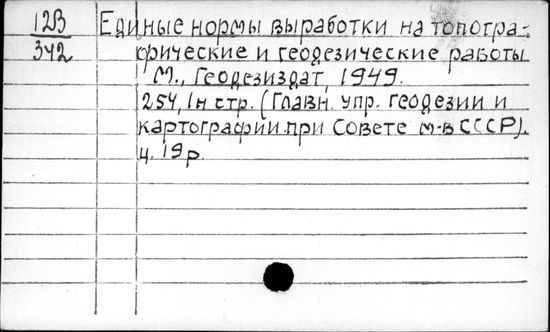 12В Единые нормы выработки на топогра-
342 фические и геодезические работы
М., Геодезиздат, 1949.
254, 1н стр. (Главн. упр. геодезии и
картографии при Совете м-в СССР).
ц. 19 р.